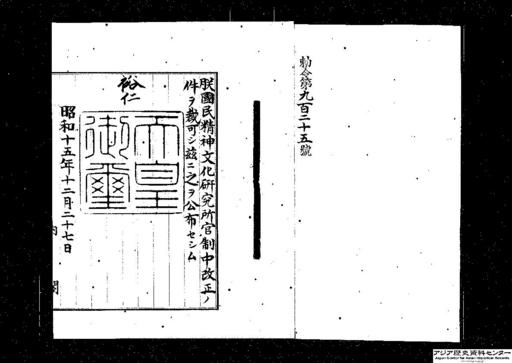 勅令第九百二十五號
朕國民精神文化研究所官制中改正ノ
件ヲ裁可シ茲ニ之ヲ公布セシム
裕仁
天皇
御璽
昭和十五年十二月二十七日
内 閣
アジア歴史資料センター
Japan Center for Asian Historical Records